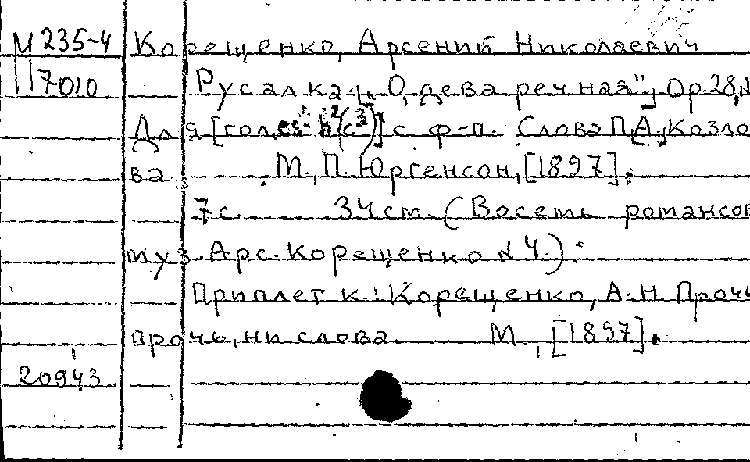 М 235-4 Корещенко, Арсений Николаевич
7010 Русалка („О, дева речная") Ор. 28,
Для [гол. c²)] с ф-п. Слова П.[А.] Козло
ва М., П. Юргенсон, [1897].
7 с. 34 см. (Восемь романсов
муз. Арс. Корещенко № 4.).
Приплет к: Корещенко, А. Н. Прочь,
прочь, ни слова М., [1897].
20943